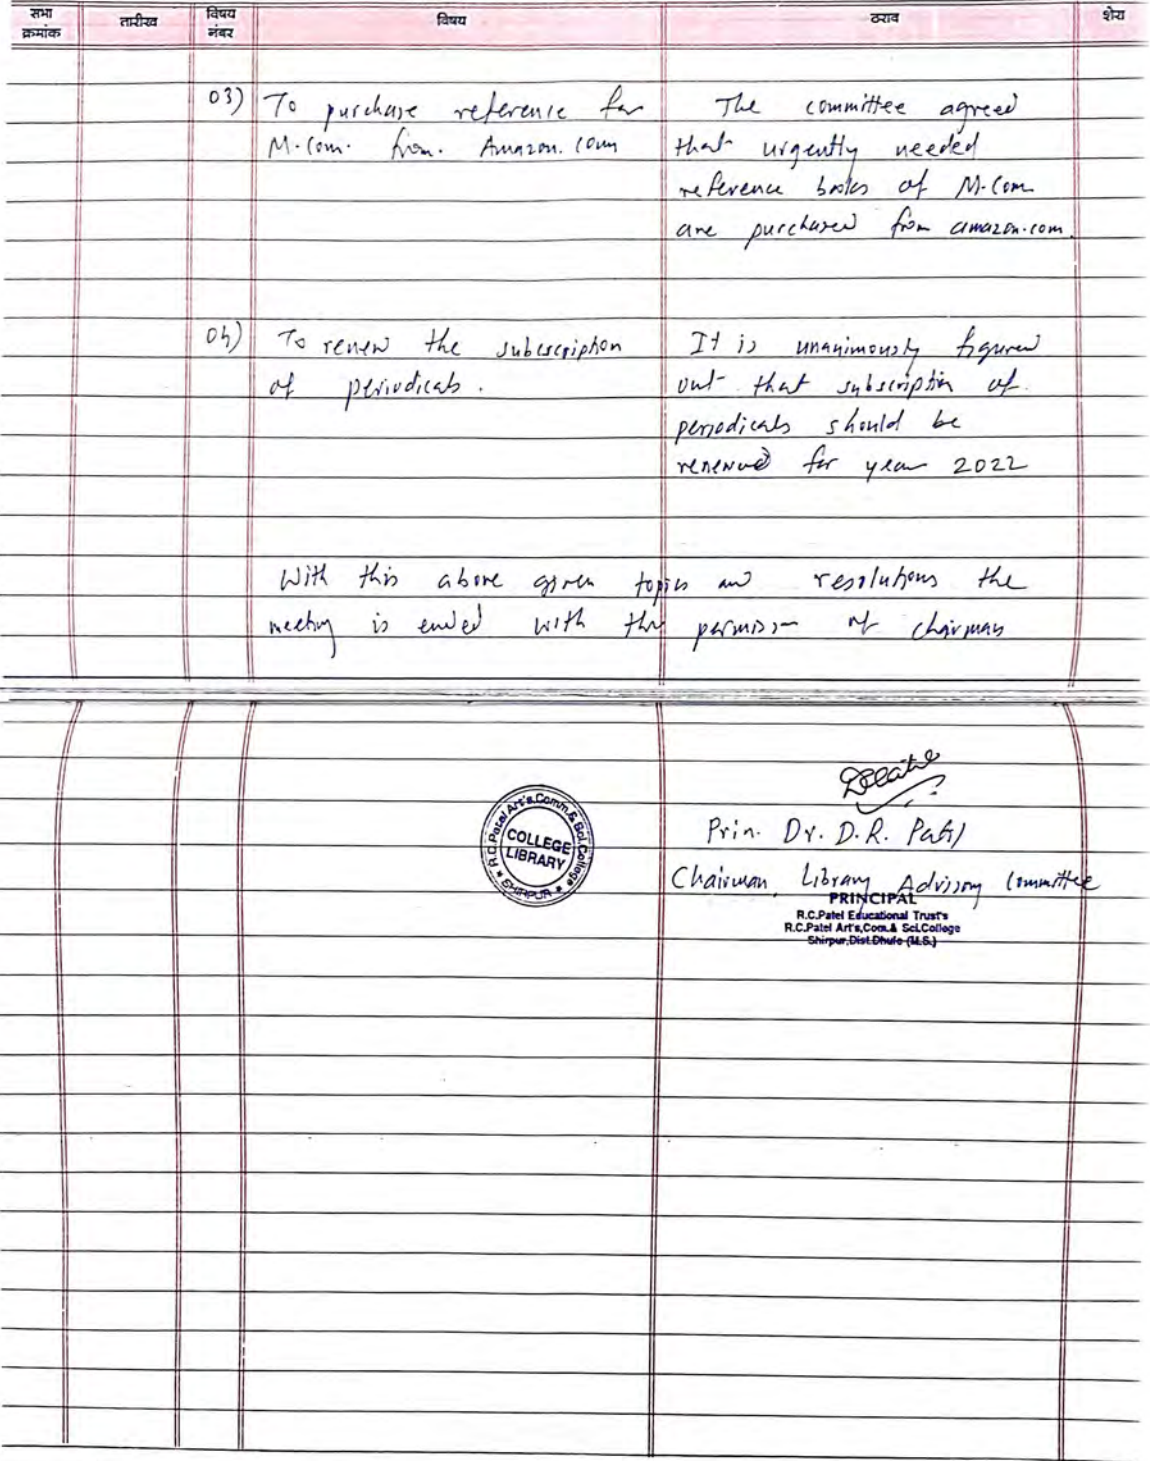 सभा क्रमांक तारीख विषय नंबर विषय ठराव शेरा
03) To purchase reference for
M.Com. from. Amazon.com
The committee agreed
that urgently needed
reference books of M.Com
are purchased from amazon.com.
04) To renew the subscription
of periodicals.
It is unanimously figured
out that subscription of
periodicals should be
renewed for year 2022
With this above given topics and resolutions the
meeting is ended with the permission of chairman
R.C.Patel Art's,Comm.& Sci.College
COLLEGE
LIBRARY
SHIRPUR
Prin. Dr. D.R. Patil
Chairman, Library Advisory Committee
PRINCIPAL
R.C.Patel Educational Trust's
R.C.Patel Art's,Com.& Sci.College
Shirpur,Dist.Dhule (M.S.)